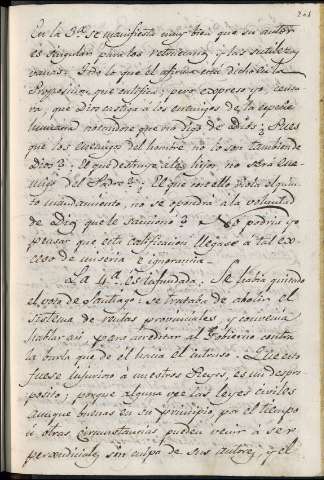 201
En la 3ª se manifiesta muy bien que su autor
es singular para las reticencias, y las sutilezas
vanas. Todo lo que él afirma está dicho en la
Proposicion que califica; pero expreso yo, censu
ra, que Dios castiga á los enemigos de la especie
humana notandose que no digo de Dios; Pues
que los enemigos del hombre no lo son tambien de
Dios? El que destruye á los hijos no será ene
migo del Padre? El que no ello viola el quin
to mandamiento, no se opondrá á la voluntad
de Dios que le sancionó? No podria yo
pensar que esta calificacion llegase á tal ex
ceso de miseria é ignorancia.
La 4ª es infundada: Se habia quitado
el voto de Santiago: se trataba de abolir el
sistema de rentas provinciales, y convenia
hablar asi para acreditar al Gobierno contra
la burla que de él hacia el intruso. Que esto
fuese injurioso á nuestros Reyes, es un despro
posito; porque alguna vez las leyes civiles
aunque buenas en su principio por el tiempo
ú otras circunstancias pueden venir á ser
perjudiciales sin culpa de sus autores; y el